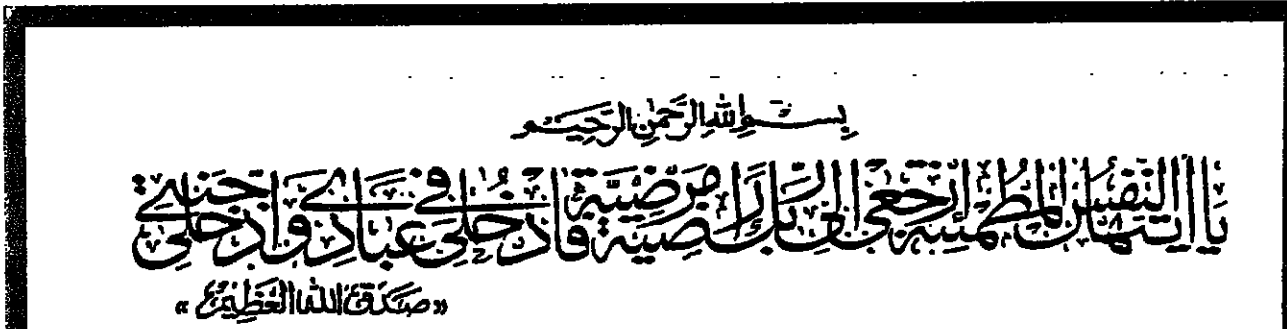 بسم الله الرحمن الرحيم
يا أيتها النفس المطمئنة ارجعي إلى ربك راضية مرضية فادخلي في عبادي وادخلي جنتي
«صدق الله العظيم»